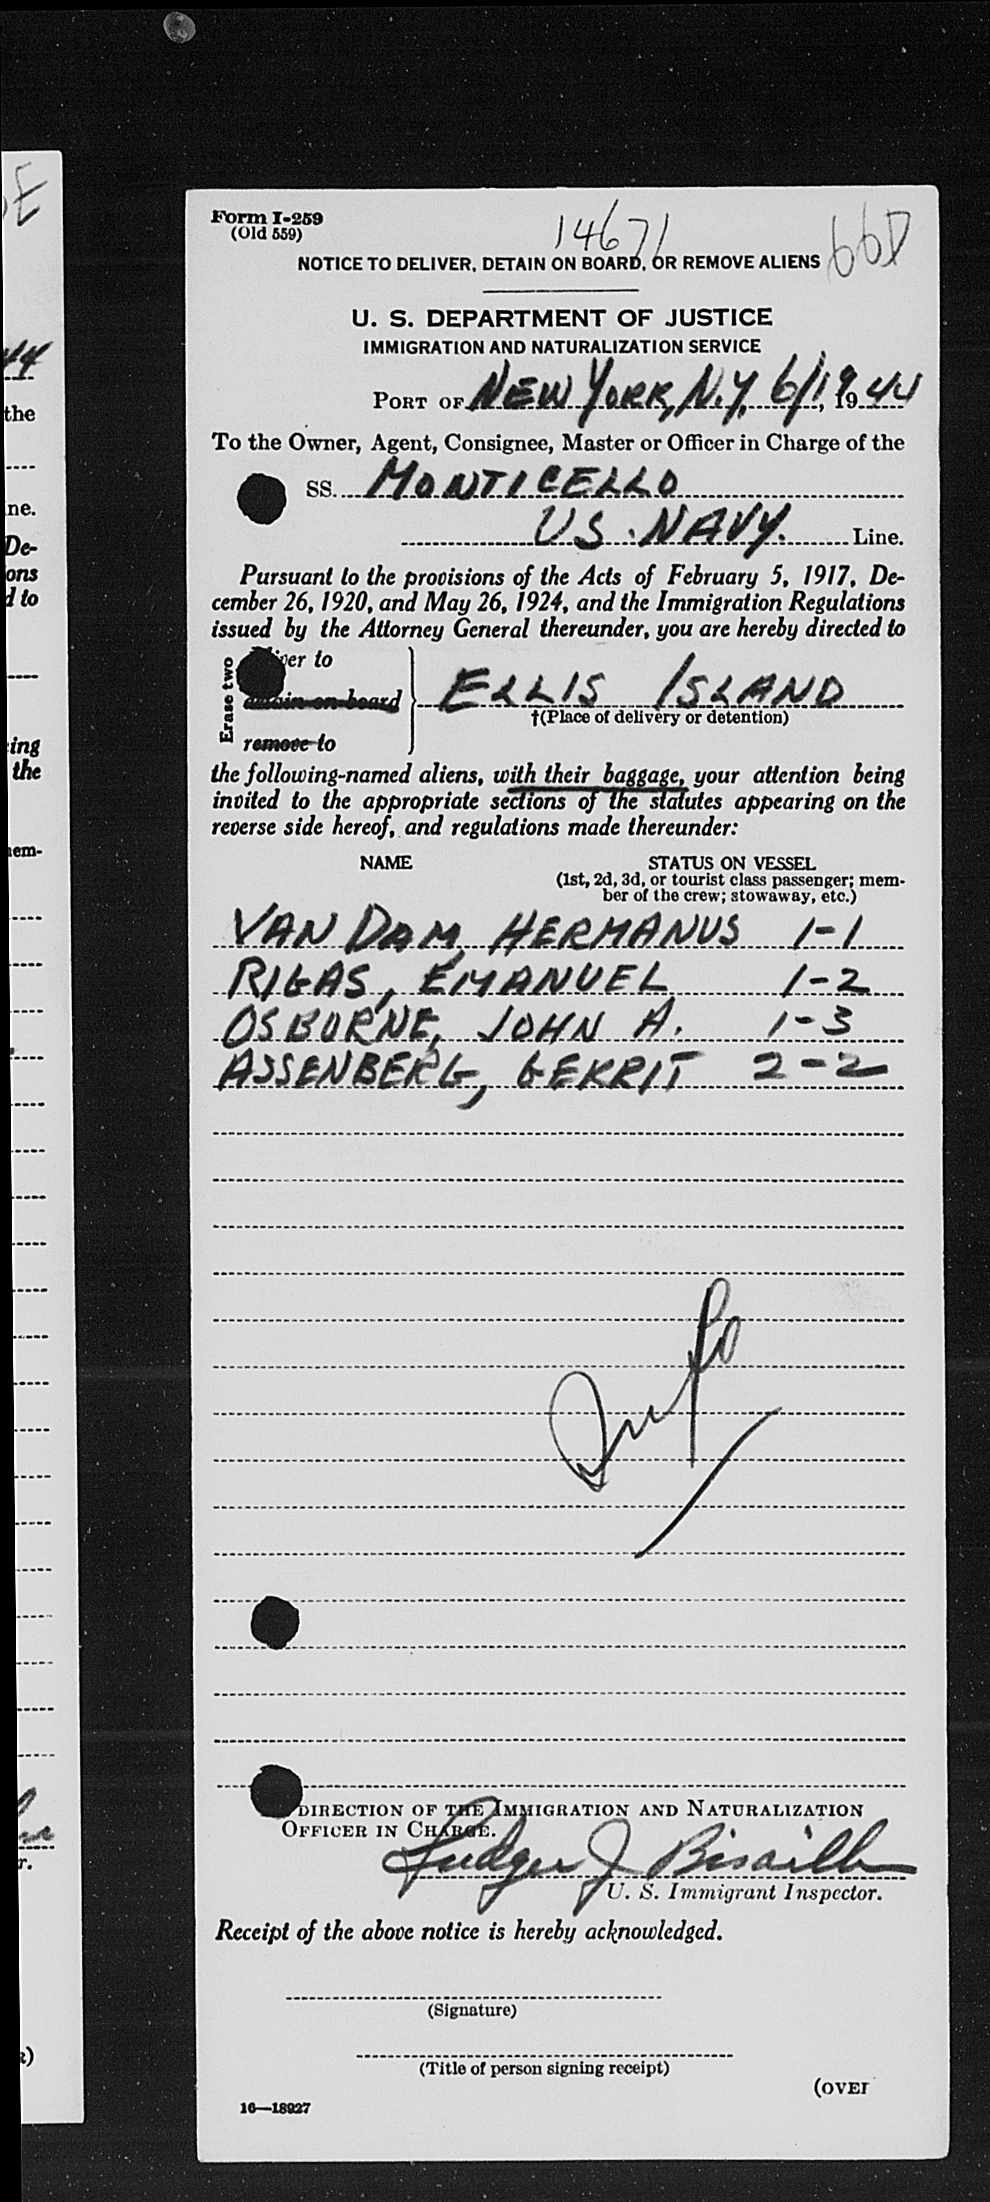 E
44
the
ne.
De-
ons
d to
ing
the
em-
r.
Form I-259
(Old 559)
14671
66D
NOTICE TO DELIVER, DETAIN ON BOARD, OR REMOVE ALIENS
U. S. DEPARTMENT OF JUSTICE
IMMIGRATION AND NATURALIZATION SERVICE
PORT OF NEW YORK, N.Y. 6/19, 1944
To the Owner, Agent, Consignee, Master or Officer in Charge of the
SS. MONTICELLO
US. NAVY. Line.
Pursuant to the provisions of the Acts of February 5, 1917, De-
cember 26, 1920, and May 26, 1924, and the Immigration Regulations
issued by the Attorney General thereunder, you are hereby directed to
Erase two
ver to
detain on board
remove to
ELLIS ISLAND
†(Place of delivery or detention)
the following-named aliens, with their baggage, your attention being
invited to the appropriate sections of the statutes appearing on the
reverse side hereof, and regulations made thereunder:
NAME STATUS ON VESSEL
(1st, 2d, 3d, or tourist class passenger; mem-
ber of the crew; stowaway, etc.)
VAN DAM, HERMANUS 1-1
RIGAS, EMANUEL 1-2
OSBURNE, JOHN A. 1-3
ASSENBERG, GERRIT 2-2
DIRECTION OF THE IMMIGRATION AND NATURALIZATION
OFFICER IN CHARGE.
Ludger J Bisaillon
U. S. Immigrant Inspector.
Receipt of the above notice is hereby acknowledged.
(Signature)
(Title of person signing receipt)
(OVER
16—18927